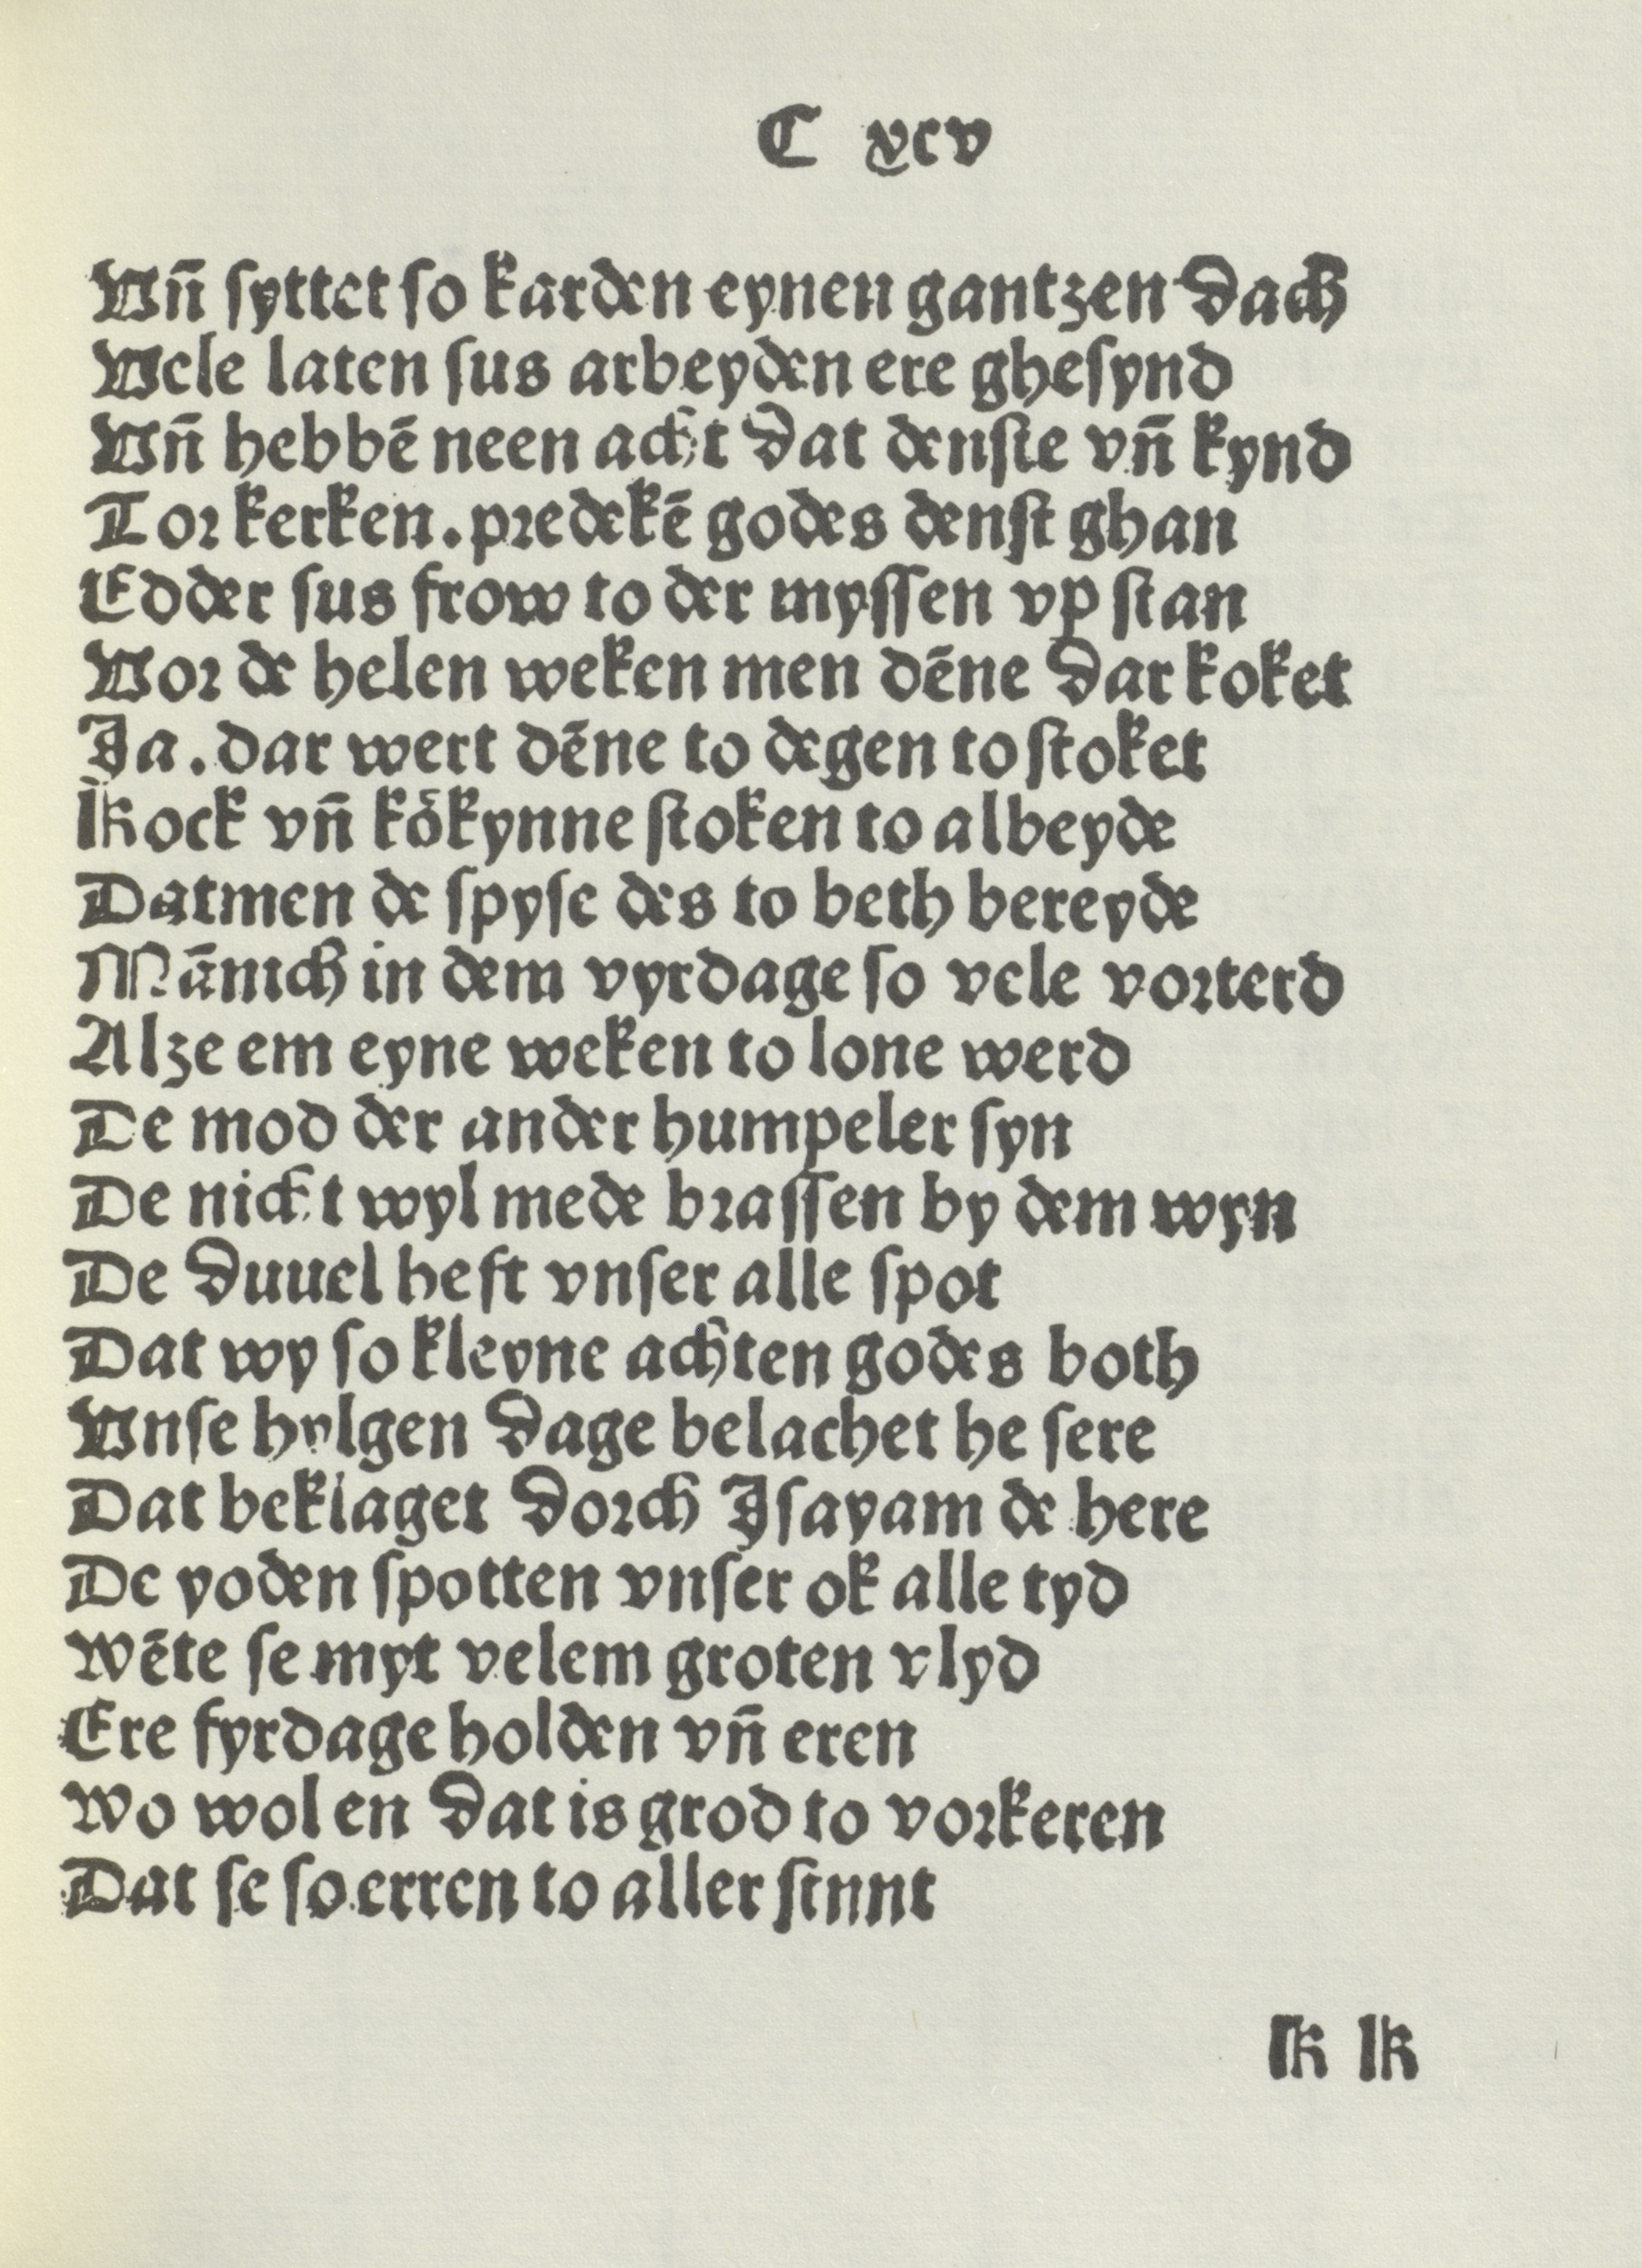 C xcv
Vn̄ syttet so karden eynen gantzen dach
Vele laten sus arbeyden ere ghesynd
Vn̄ hebbē neen acht dat denste vn̄ kynd
Tor kerken. predekē godes denst ghan
Edder sus frow to der myssen vp stan
Vor de helen weken men dēne dar koket
Ja. dar wert dēne to degen to stoket
Kock vn̄ kökynne stoken to albeyde
Datmen de spyse des to beth bereyde
Mānich in dem vyrdage so vele vorterd
Alze em eyne weken to lone werd
De mod der ander humpeler syn
De nicht wyl mede brassen by dem wyn
De duuel heft vnser alle spot
Dat wy so kleyne achten godes both
Vnse hylgen dage belachet he sere
Dat beklaget dorch Jsayam de here
De yoden spotten vnser ok alle tyd
Wēte se myt velem groten vlyd
Ere fyrdage holden vn̄ eren
Wo wol en dat is grod to vorkeren
Dat se so erren to aller stunt
K K